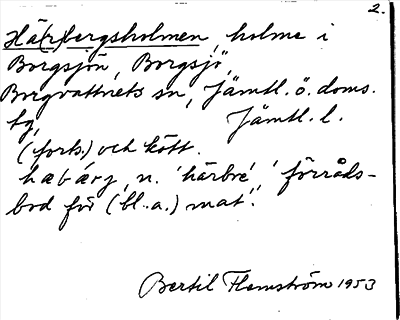 2.
Hä(r)bergsholmen, holme i
Borgsjön, Borgsjö,
Borgvattnets sn, Jämtl. ö. doms.
Jämtl. l.
(forts.) och kött.
n. 'härbre', 'förråds-
bod för (bl.a.) mat'.
Bertil Flemström 1953